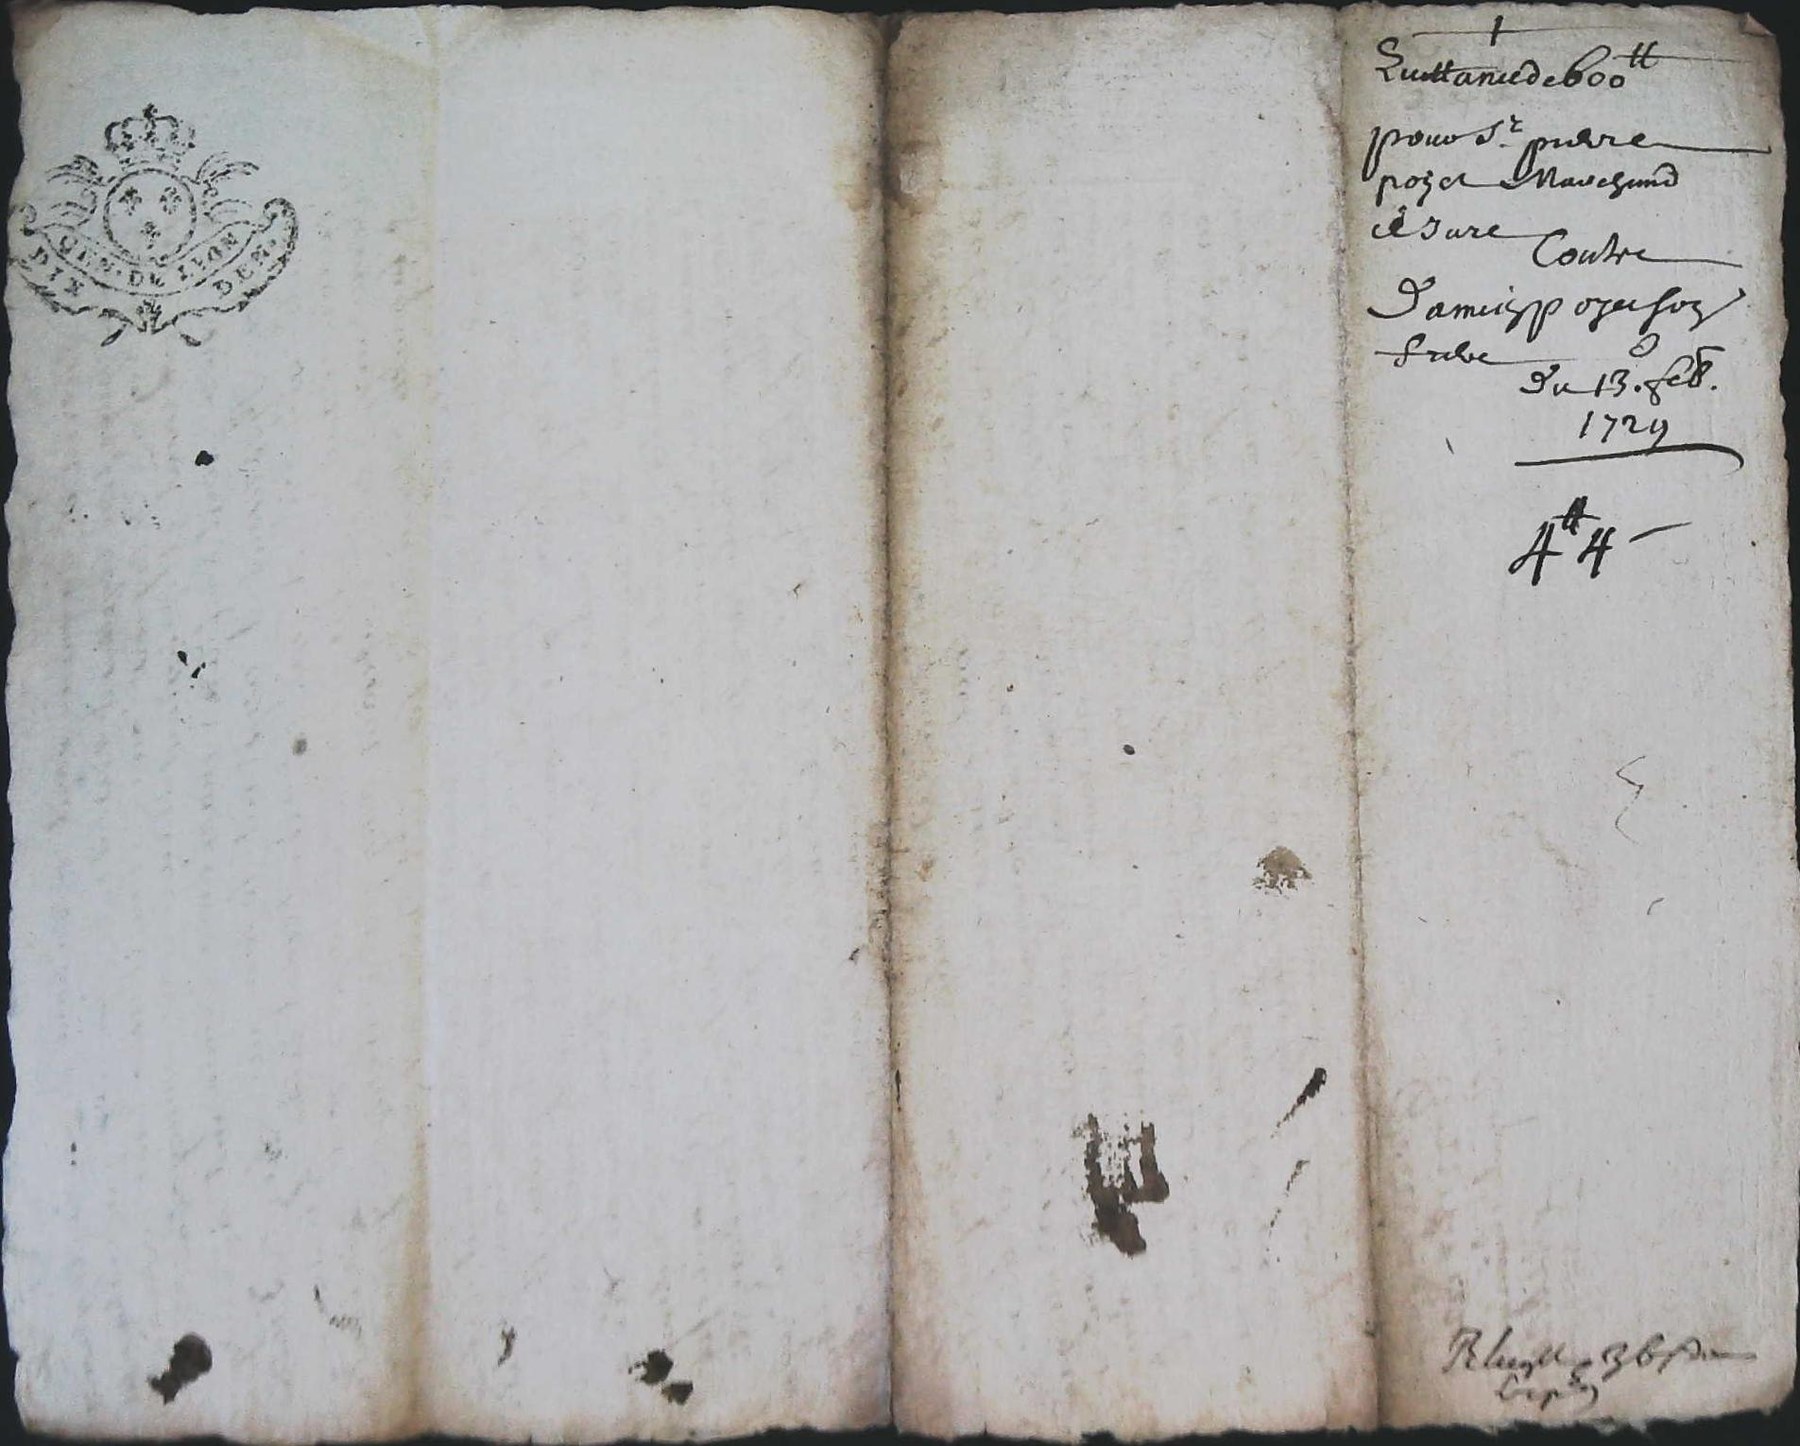 GEN. DE LION
DIX DEN.
1
Quittance de 600 tt
pour Sr. pierre
poyet Marchand
Contre
poyet son
frere
Du 13. feb.
1729
4 tt 4